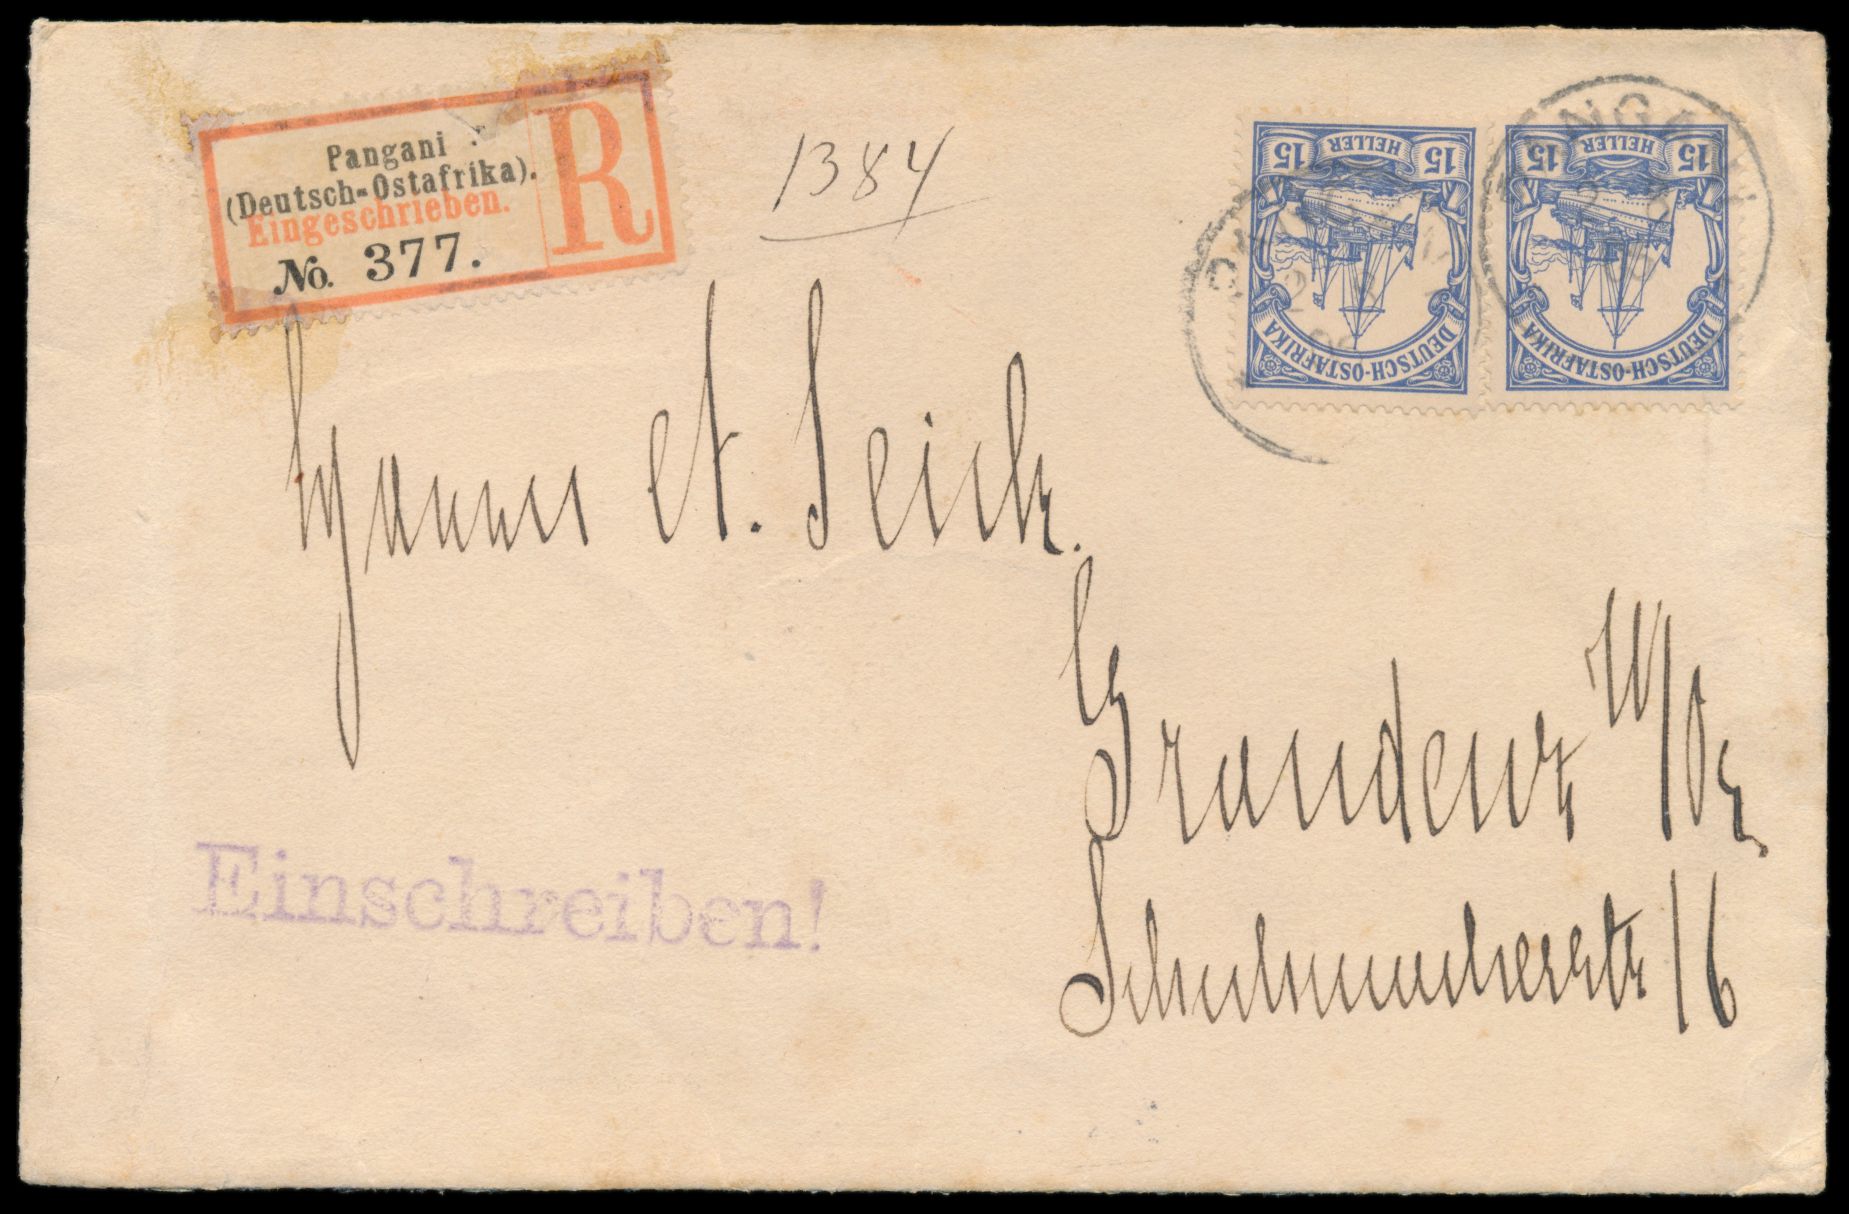 Pangani
(Deutsch=Ostafrika).
Eingeschrieben.
No. 377.
R
1384
15 HELLER 15
DEUTSCH-OSTAFRIKA
15 HELLER 15
DEUTSCH-OSTAFRIKA
A. Seick.
Graudenz W/Pr
16
Einschreiben!